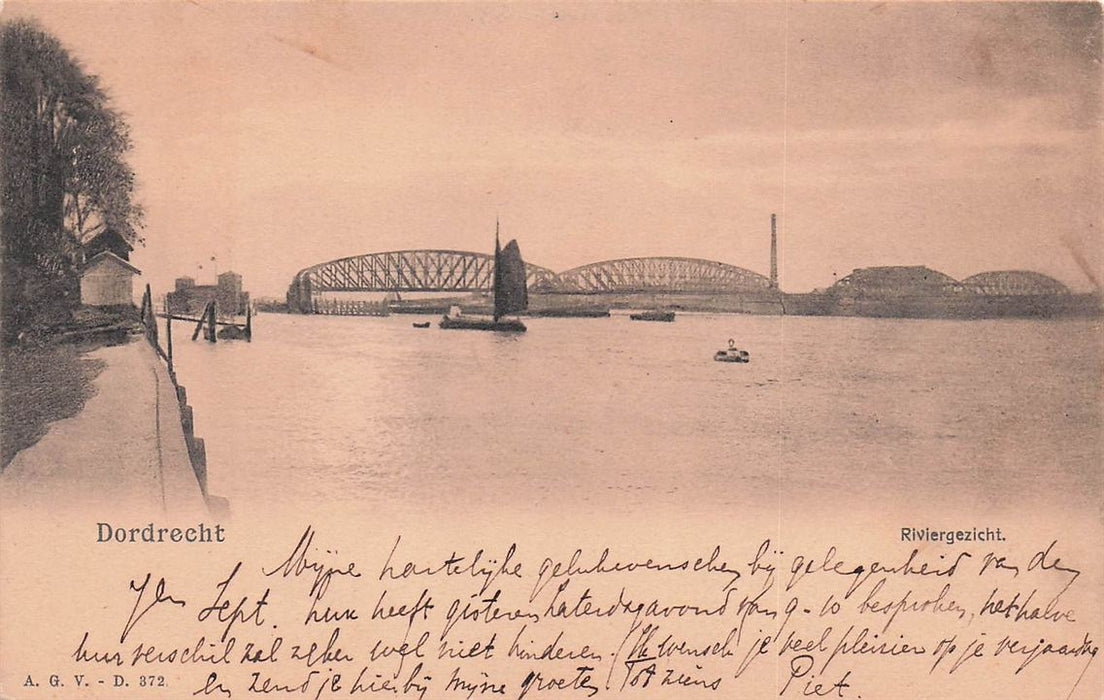 Dordrecht
Riviergezicht.
Mijne hartelijke gelukwenschen bij gelegenheid van den
7en Sept. heeft gisteren Zaterdagavond van 9-10 besproken, het halve
uur verschil zal zeker wel niet hinderen. Ik wensch je veel plezier op je verjaardag
en zend je hierbij mijne groeten. Tot ziens Piet.
A. G. V. - D. 372